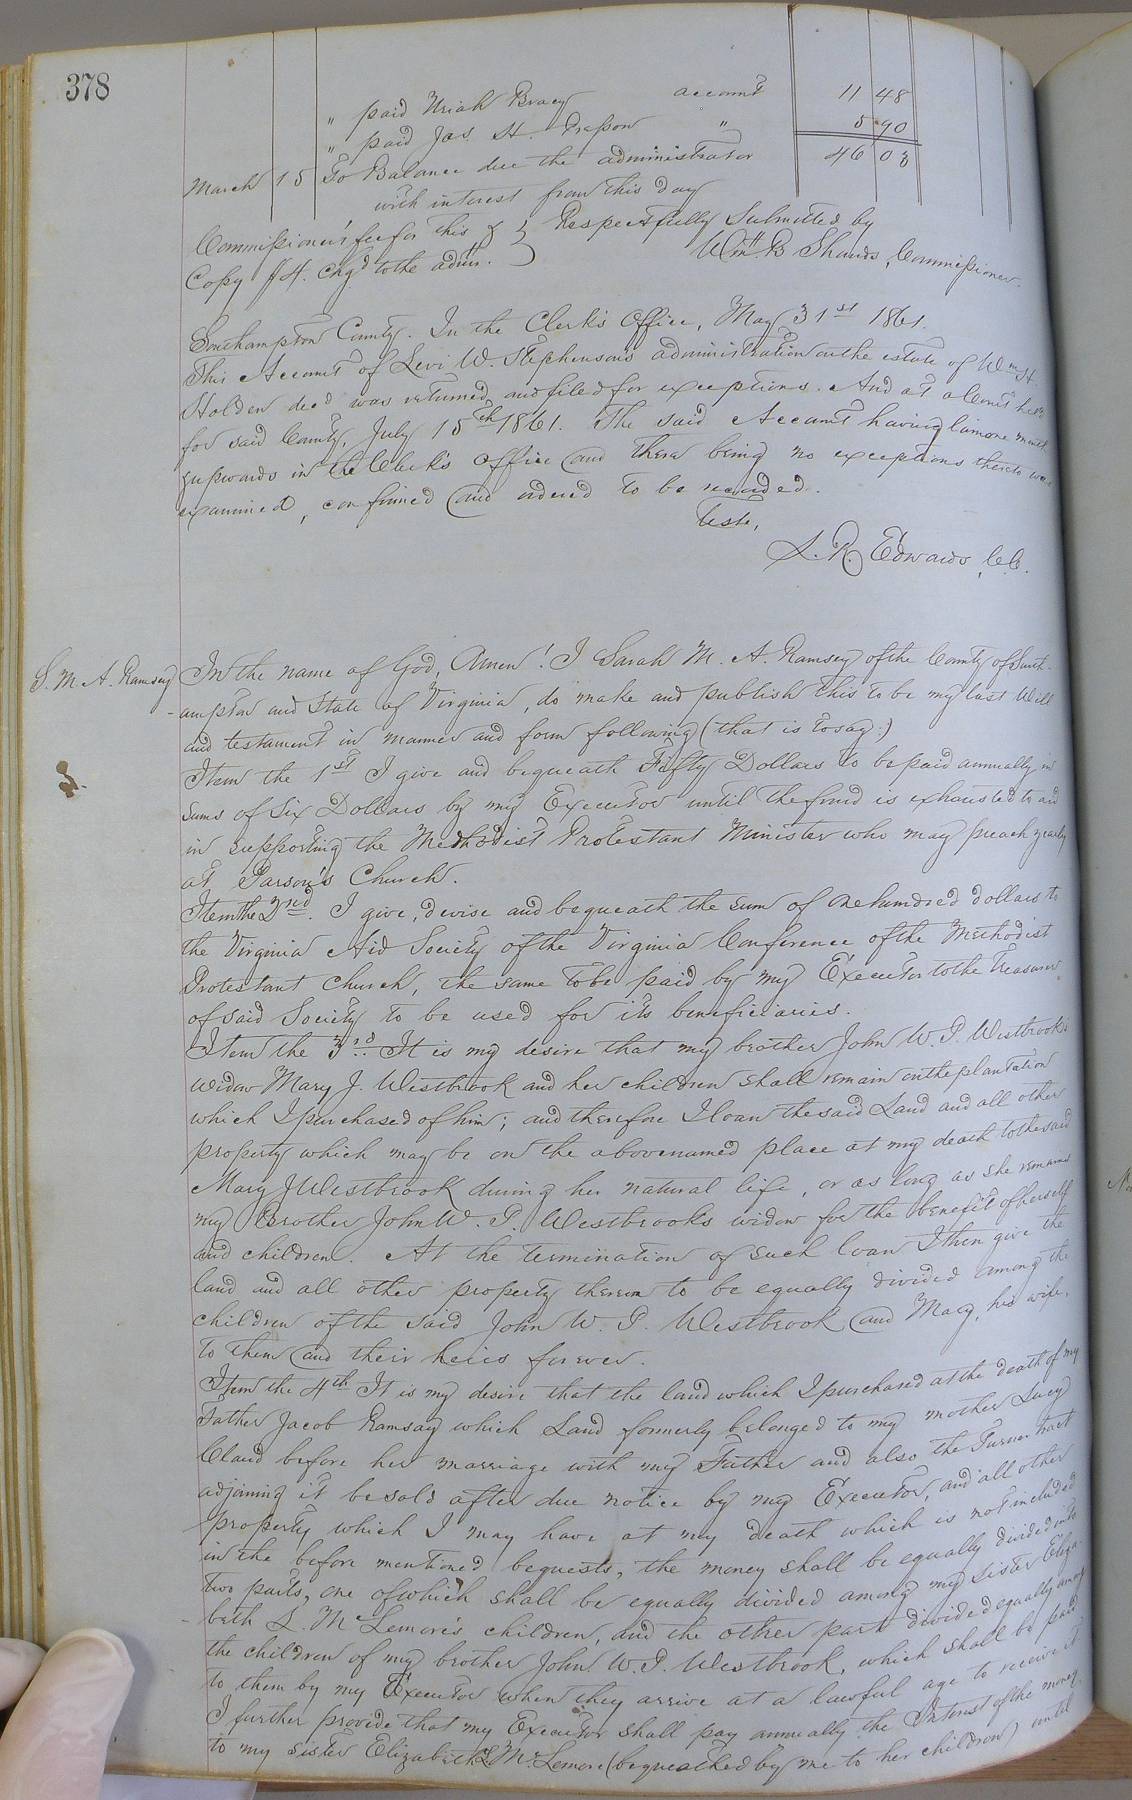 378
" paid Uriah Bracy account 11 48
" paid Jas. H. " 5 90
March 15 To Balance due the administrator 46 03
with interest from this day
Commissioner's fee for this & } Respectfully Submitted by
Copy $4. chgd to the admr. Wm. B Shands, Commissioner.
Southampton County. In the Clerk's Office, May 31st 1861.
This Account of Levi W. Stephenson's administration on the estate of Wm H.
Holden decd was returned and filed for exceptions. And at a Court held
for said County, July 15th 1861. The said Account having lain one month
& upwards in the Clerk's office and there being no exceptions thereto was
examined, confirmed and ordered to be recorded.
Teste,
L. R. Edwards, C.C.
S. M. A. Ramsey
In the name of God, Amen! I Sarah M. A. Ramsey of the County of South-
-ampton and State of Virginia, do make and publish this to be my last Will
and testament in manner and form following (that is to say:)
Item the 1st I give and bequeath Fifty Dollars to be paid annually in
sums of Six Dollars by my Executor until the fund is exhausted to aid
in supporting the Methodist Protestant Minister who may preach yearly
at Parson's Church.
Item the 2nd. I give, devise and bequeath the sum of one hundred dollars to
the Virginia Aid Society of the Virginia Conference of the Methodist
Protestant Church, the same to be paid by my Executor to the Treasurer
of said Society to be used for its beneficiaries.
Item the 3rd It is my desire that my brother John W. P. Westbrook's
widow Mary J. Westbrook and her children shall remain on the plantation
which I purchased of him; and therefore I loan the said Land and all other
property which may be on the abovenamed place at my death to the said
Mary J Westbrook during her natural life, or as long as she remains
my Brother John W. P. Westbrook's widow for the benefit of herself
and children. At the termination of such loan I then give the
land and all other property thereon to be equally divided among the
children of the said John W. P. Westbrook and Mary, his wife,
to them and their heirs forever.
Item the 4th It is my desire that the land which I purchased at the death of my
Father Jacob Ramsay which Land formerly belonged to my mother Lucy
Claud before her marriage with my Father and also the Turner tract
adjoining it be sold after due notice by my Executor, and all other
property which I may have at my death which is not included
in the before mentioned bequests, the money shall be equally divided into
two parts, one of which shall be equally divided among my sister Eliza-
-beth L. McLemore's children, and the other part divided equally among
the children of my brother John W. P. Westbrook, which shall be paid
to them by my Executor when they arrive at a lawful age to receive it
I further provide that my Executor shall pay annually the Interest of the money
to my sister Elizabeth L McLemore (bequeathed by me to her children) until